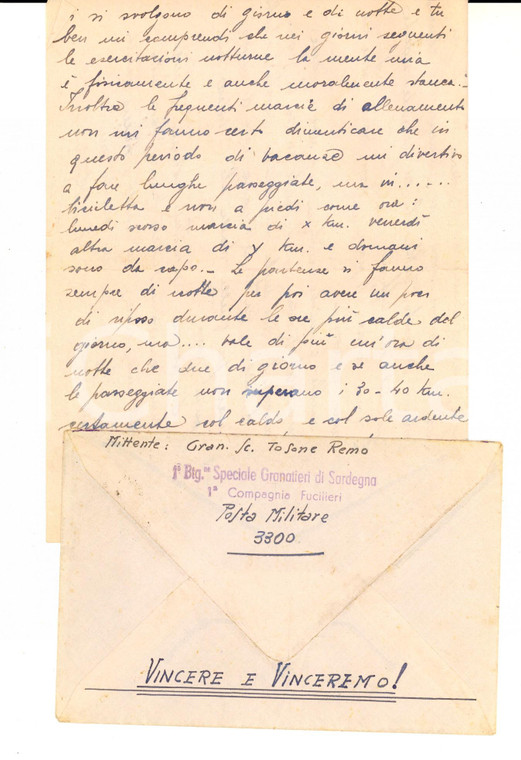 i si svolgono di giorno e di notte e tu
ben mi comprendi che nei giorni seguenti
le esercitazioni notturne la mente mia
è fisicamente e anche moralmente stanca.-
Inoltre le frequenti marcie di allenamento
non mi fanno certo dimenticare che in
questo periodo di vacanze mi divertivo
a fare lunghe passeggiate, ma in......
bicicletta e non a piedi come ora:
lunedì scorso marcia di x km. venerdì
altra marcia di y km. e domani
sono da capo.- Le partenze si fanno
sempre di notte per poi avere un poco
di riposo durante le ore più calde del
giorno, ma.... vale di più un'ora di
notte che due di giorno e se anche
le passeggiate non superano i 30-40 km.
certamente col caldo, e col sole ardente
Mittente: Gran. Sc. Tosone Remo
1° Btg.ne Speciale Granatieri di Sardegna
1ª Compagnia Fucilieri
Posta Militare
3300
VINCERE E VINCEREMO!